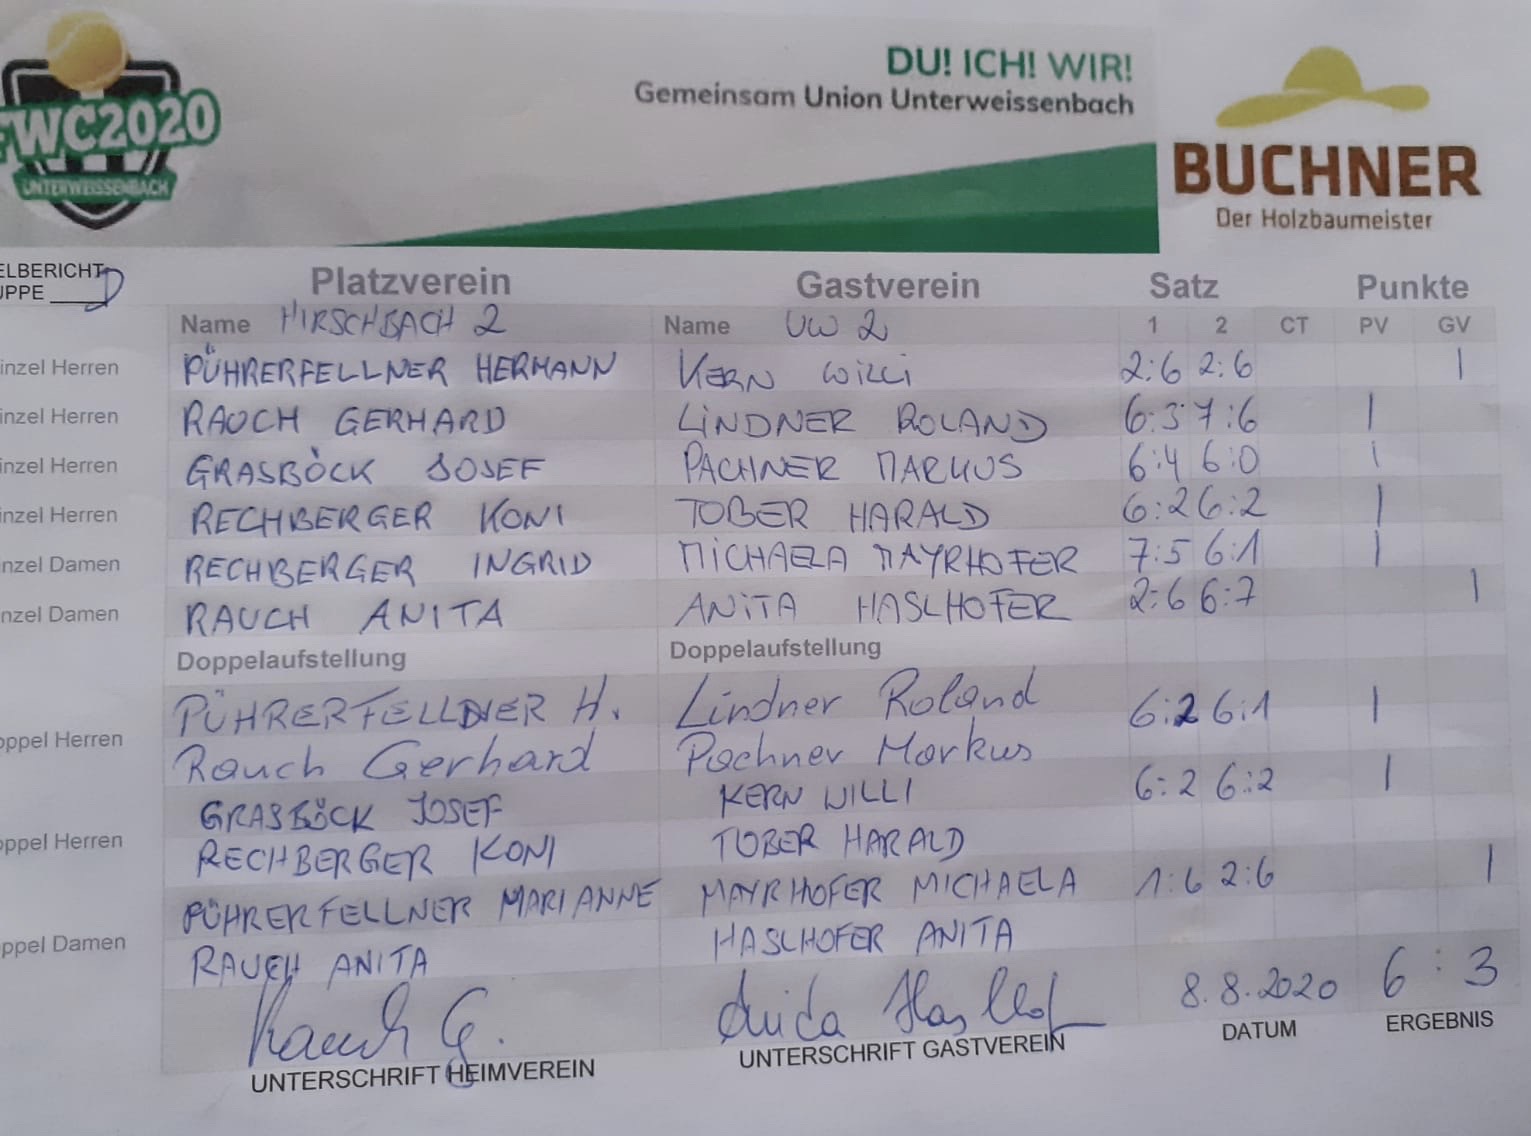 DU! ICH! WIR!
Gemeinsam Union Unterweissenbach
WC2020
UNTERWEISSENBACH
BUCHNER
Der Holzbaumeister
ELBERICHT
UPPE D
Platzverein Gastverein Satz Punkte
Name HIRSCHBACH 2 Name UW 2 1 2 CT PV GV
inzel Herren PÜHRERFELLNER HERMANN KERN WILLI 2:6 2:6 1
inzel Herren RAUCH GERHARD LINDNER ROLAND 6:3 7:6 1
inzel Herren GRASBÖCK JOSEF PACHNER MARKUS 6:4 6:0 1
inzel Herren RECHBERGER KONI TOBER HARALD 6:2 6:2 1
inzel Damen RECHBERGER INGRID MICHAELA MAYRHOFER 7:5 6:1 1
nzel Damen RAUCH ANITA ANITA HASLHOFER 2:6 6:7 1
Doppelaufstellung Doppelaufstellung
PÜHRERFELLNER H. Lindner Roland 6:2 6:1 1
oppel Herren Rauch Gerhard Pachner Markus
GRASBÖCK JOSEF KERN WILLI 6:2 6:2 1
oppel Herren RECHBERGER KONI TOBER HARALD
PÜHRERFELLNER MARIANNE MAYRHOFER MICHAELA 1:6 2:6 1
oppel Damen RAUCH ANITA HASLHOFER ANITA
Rauch G. 8.8.2020 6:3
UNTERSCHRIFT HEIMVEREIN UNTERSCHRIFT GASTVEREIN DATUM ERGEBNIS